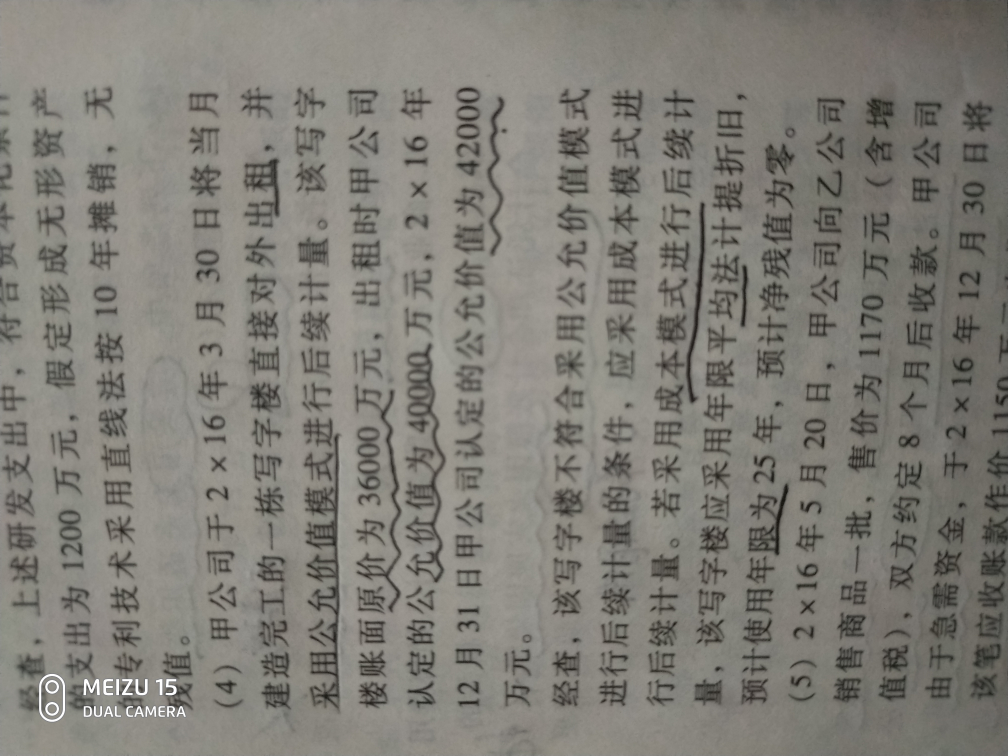 经查，上述研发支出中，符合资本化条件
的支出为 1200 万元，假定形成无形资产
专利技术采用直线法按 10 年摊销，无
残值。
（4）甲公司于 2×16 年 3 月 30 日将当月
建造完工的一栋写字楼直接对外出租，并
采用公允价值模式进行后续计量。该写字
楼账面原价为 36000 万元，出租时甲公司
认定的公允价值为 40000 万元，2×16 年
12 月 31 日甲公司认定的公允价值为 42000
万元。
经查，该写字楼不符合采用公允价值模式
进行后续计量的条件，应采用成本模式进
行后续计量。若采用成本模式进行后续计
量，该写字楼应采用年限平均法计提折旧，
预计使用年限为 25 年，预计净残值为零。
（5）2×16 年 5 月 20 日，甲公司向乙公司
销售商品一批，售价为 1170 万元（含增
值税），双方约定 8 个月后收款。甲公司
由于急需资金，于 2×16 年 12 月 30 日将
该笔应收账款作价 1150
MEIZU 15
DUAL CAMERA